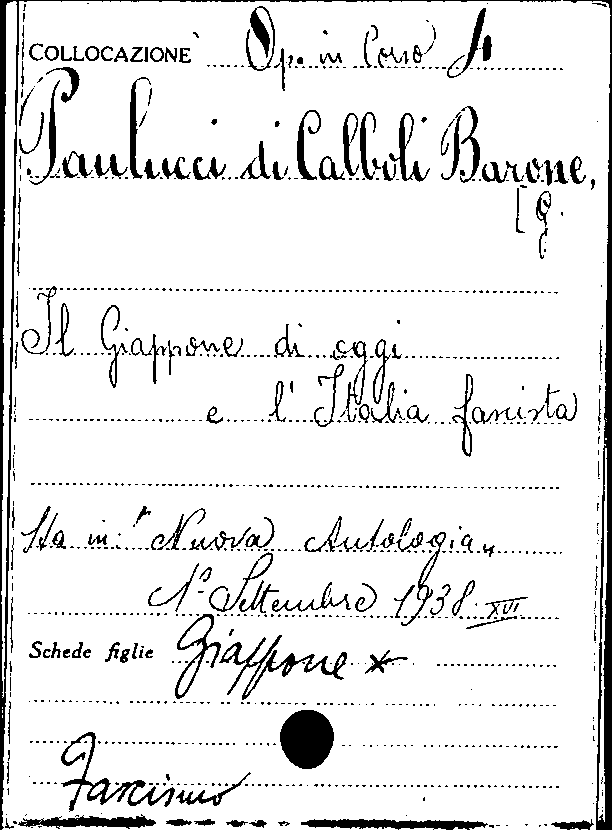 COLLOCAZIONE Op. in Corso 4
Paulucci di Calboli Barone,
[G.
Il Giappone di oggi
e l'Italia fascista
Sta in: "Nuova Antologia"
1º Settembre 1938 XVI
Schede figlie Giappone x
Fascismo